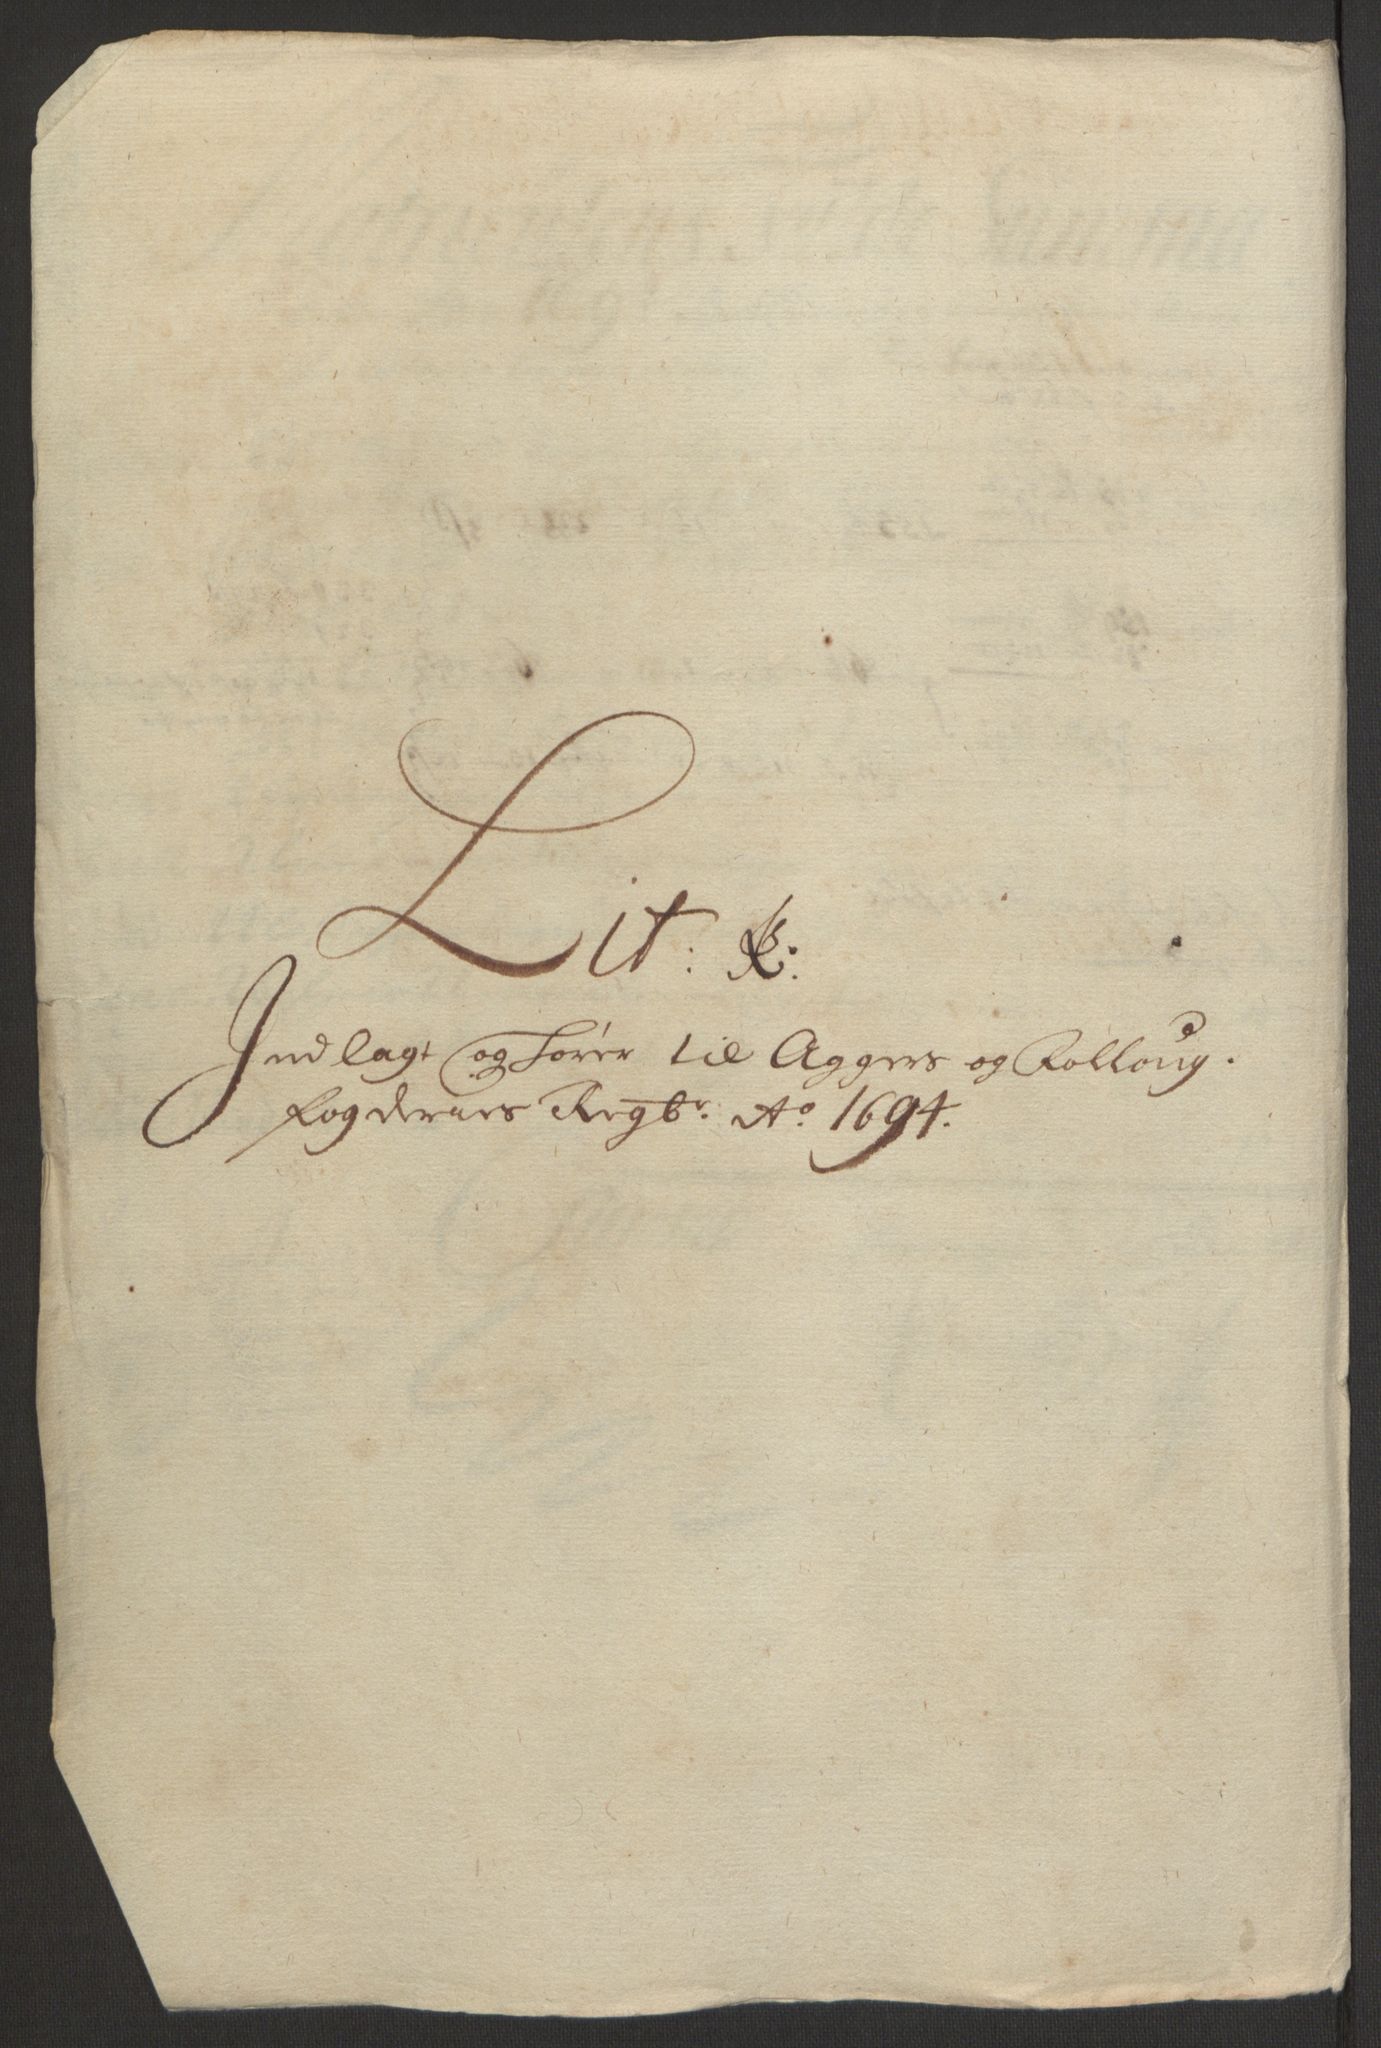 Lit: K:
Indlagt og hører til Aggers og Folloug.
fogderies Regbr. Ao. 1694.